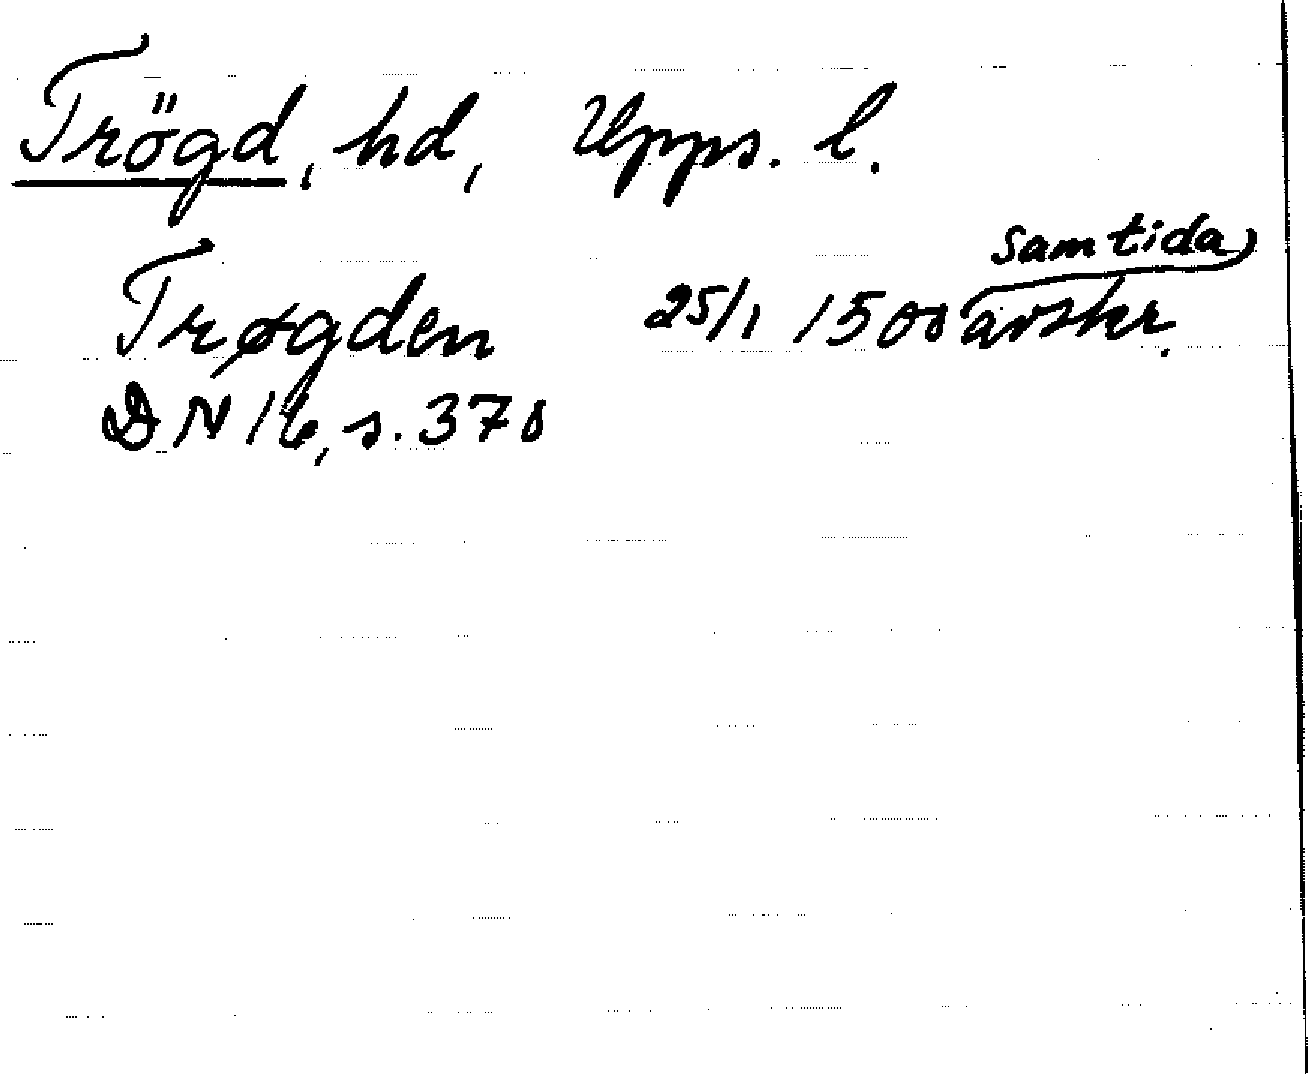 Trögd, hd, Upps. l.
samtida
Trøgden 25/1 1500 avskr.
DN 16, s. 370